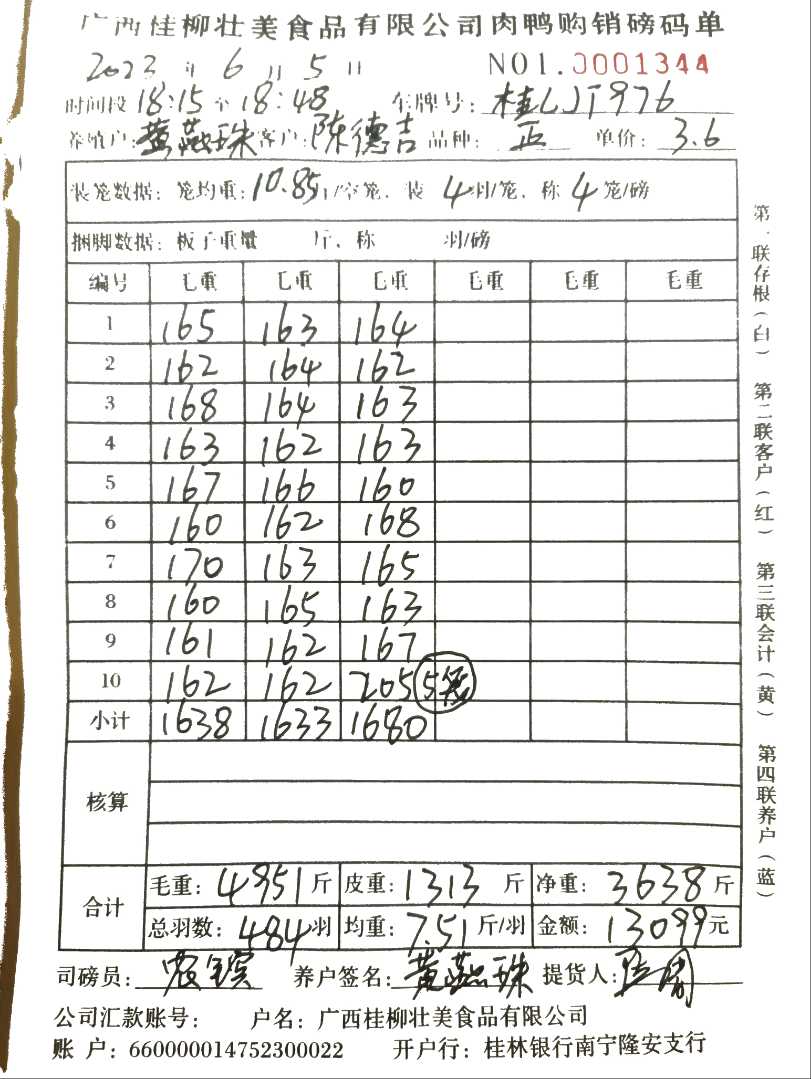 广西桂柳壮美食品有限公司肉鸭购销磅码单
2023 年 6 月 5 日 NO1.0001344
时间段 18:15 至 18:48 车牌号: 桂LJT976
养殖户: 黄燕珠 客户: 陈德吉 品种: 正 单价: 3.6
装笼数据: 笼均重: 10.85 斤/空笼, 装 4 羽/笼, 称 4 笼/磅
捆脚数据: 板子重量 斤, 称 羽/磅
编号 毛重 毛重 毛重 毛重 毛重 毛重
1 165 163 164
2 162 164 162
3 168 164 163
4 163 162 163
5 167 166 160
6 160 162 168
7 170 163 165
8 160 165 163
9 161 162 167
10 162 162 205 5笼
小计 1638 1633 1680
核算
合计
毛重: 4951 斤 皮重: 1313 斤 净重: 3638 斤
总羽数: 484 羽 均重: 7.51 斤/羽 金额: 13099 元
司磅员: 养户签名: 黄燕珠 提货人:
公司汇款账号: 户名: 广西桂柳壮美食品有限公司
账 户: 660000014752300022 开户行: 桂林银行南宁隆安支行
第一联存根(白) 第二联客户(红) 第三联会计(黄) 第四联养户(蓝)